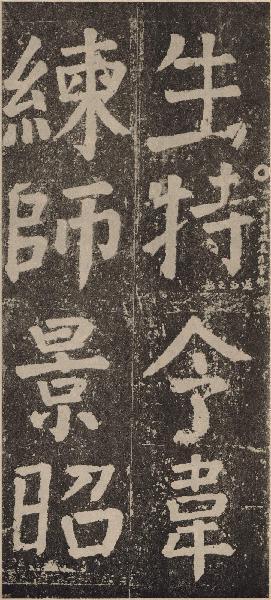 生特令韋
練師景昭